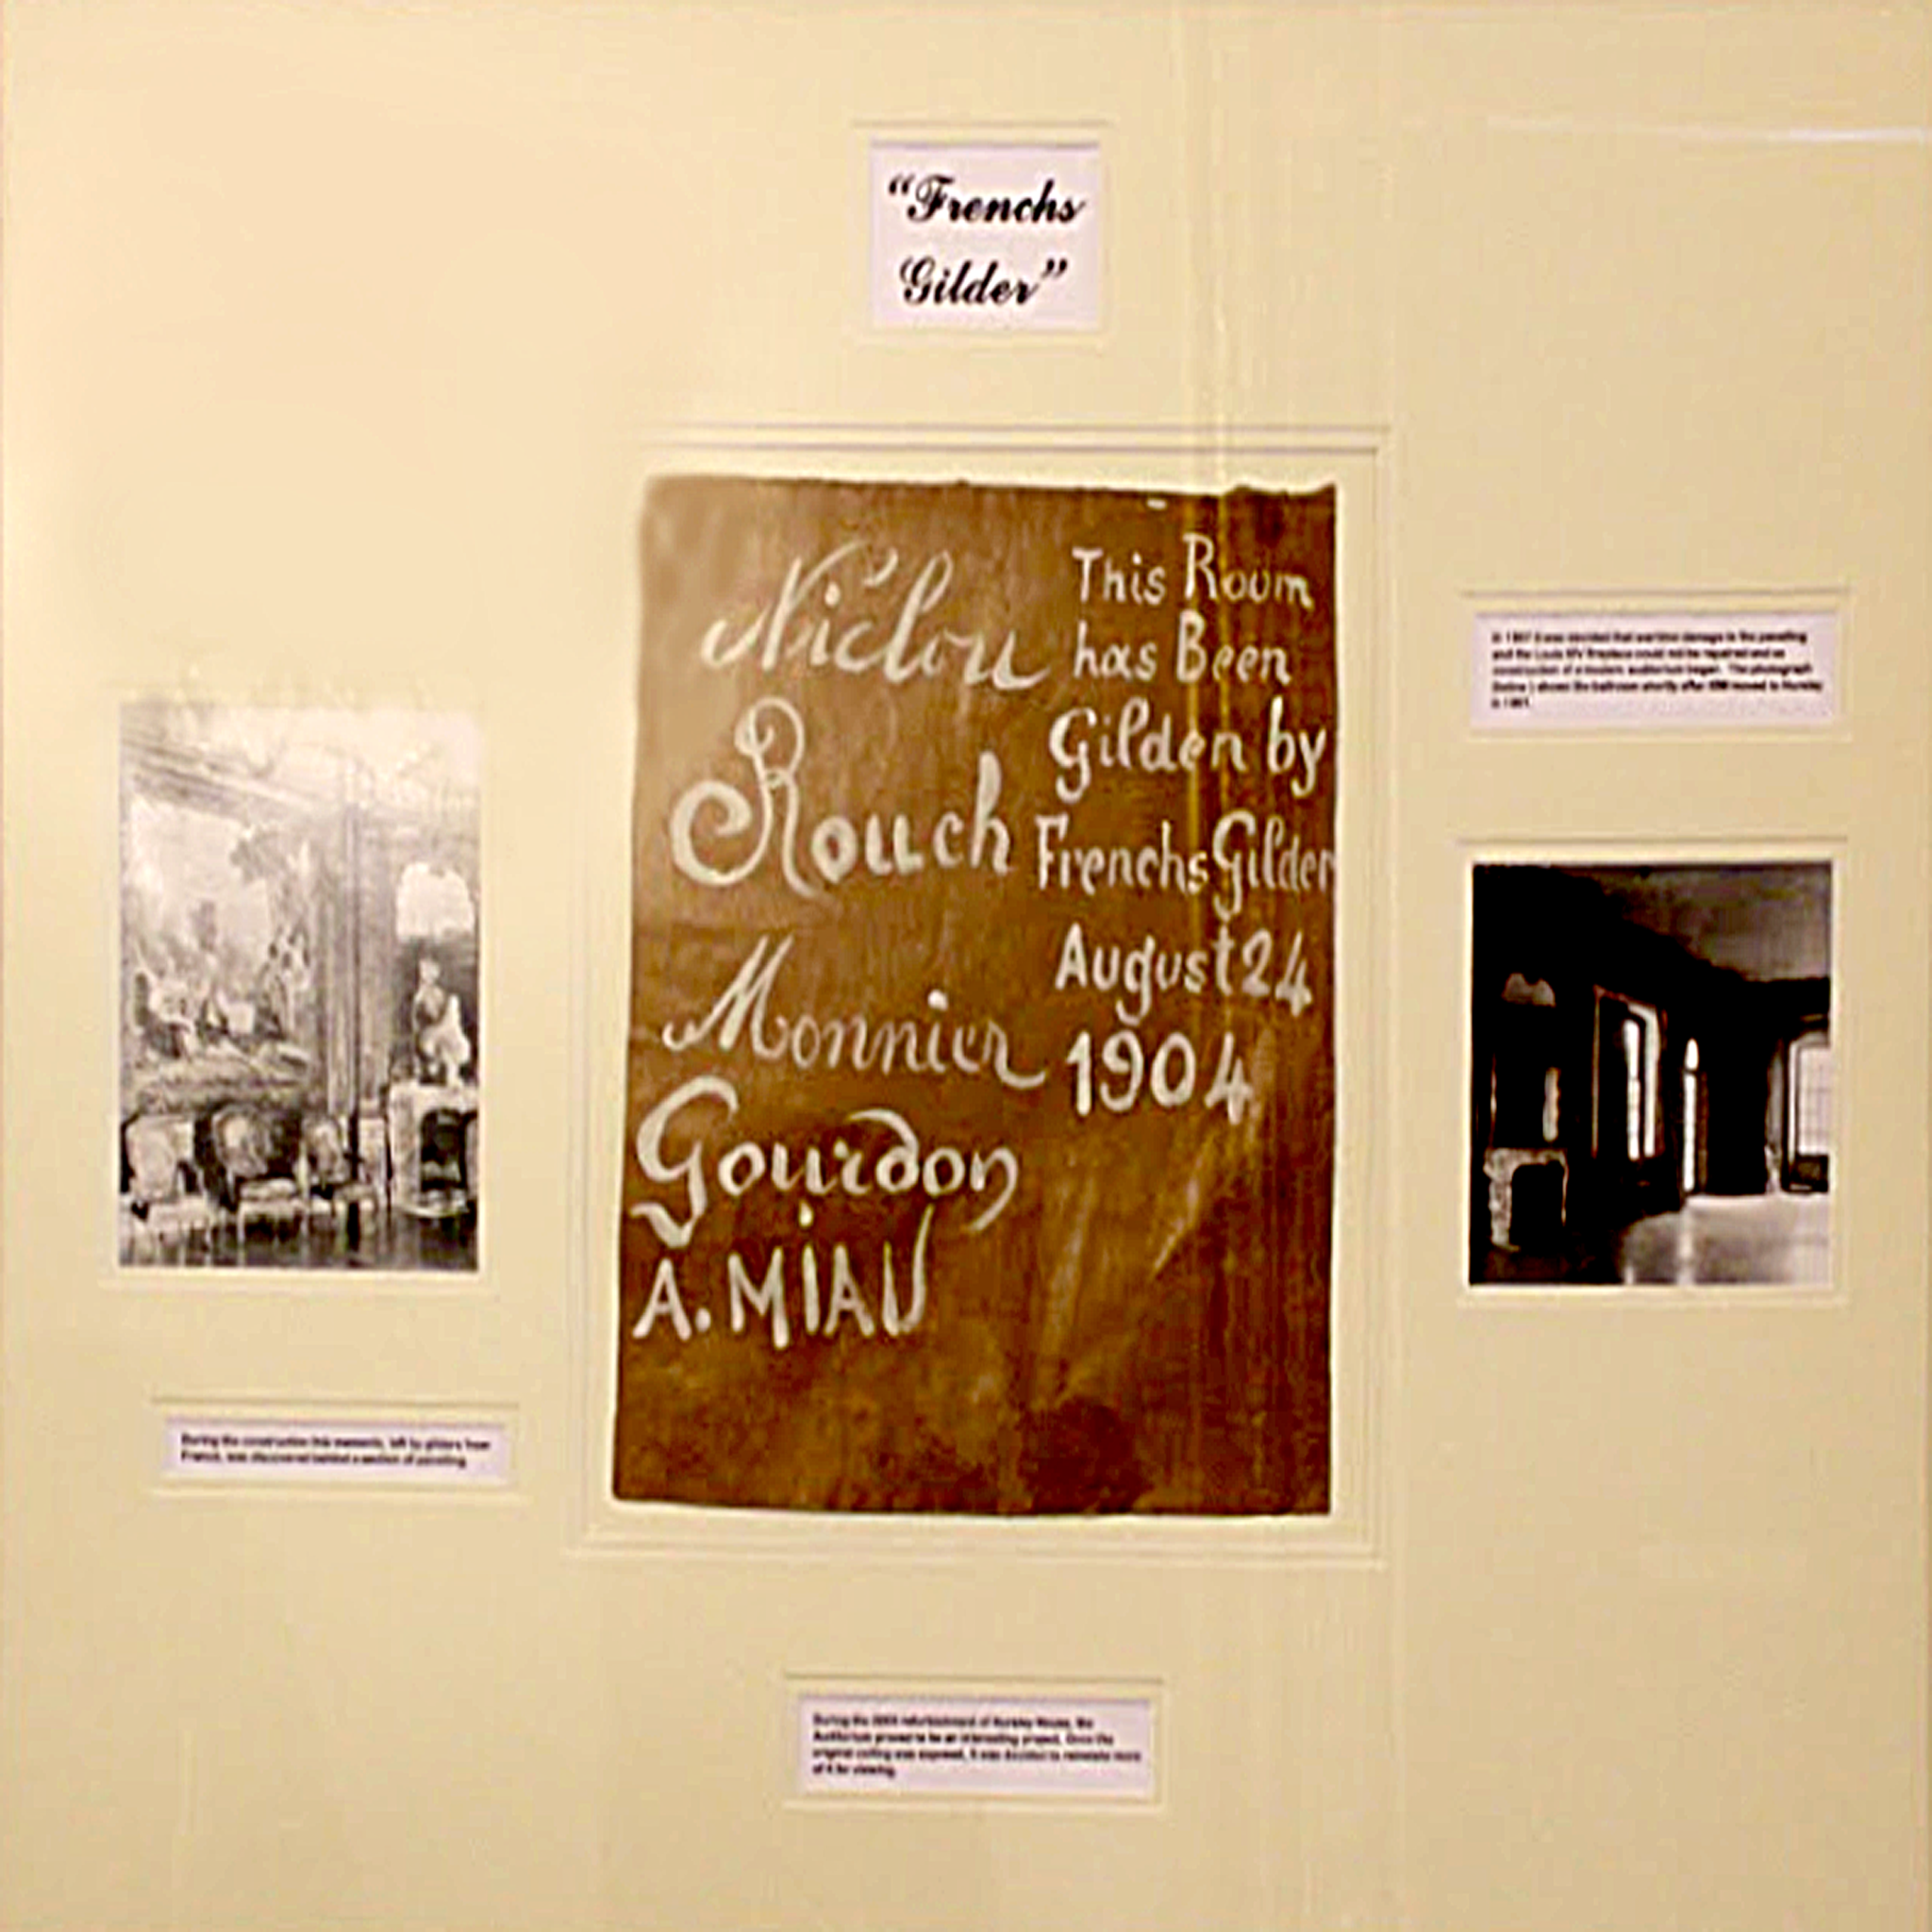 “Frenchs
Gilder”
Niclou
Rouch
Monnier
Gourdon
A. MIAU
This Room
has Been
Gilden by
Frenchs Gilder
August 24
1904
and the Louis XIV fireplace could not be repaired and so
construction of a modern auditorium began. The photograph
(below) shows the ballroom shortly after IBM moved to Hursley
During the construction this memento, left by gilders from
France, was discovered behind a section of panelling.
During the refurbishment of Hursley House, the
Auditorium proved to be an interesting project. Once the
original ceiling was exposed, it was decided to reinstate more
of it for viewing.